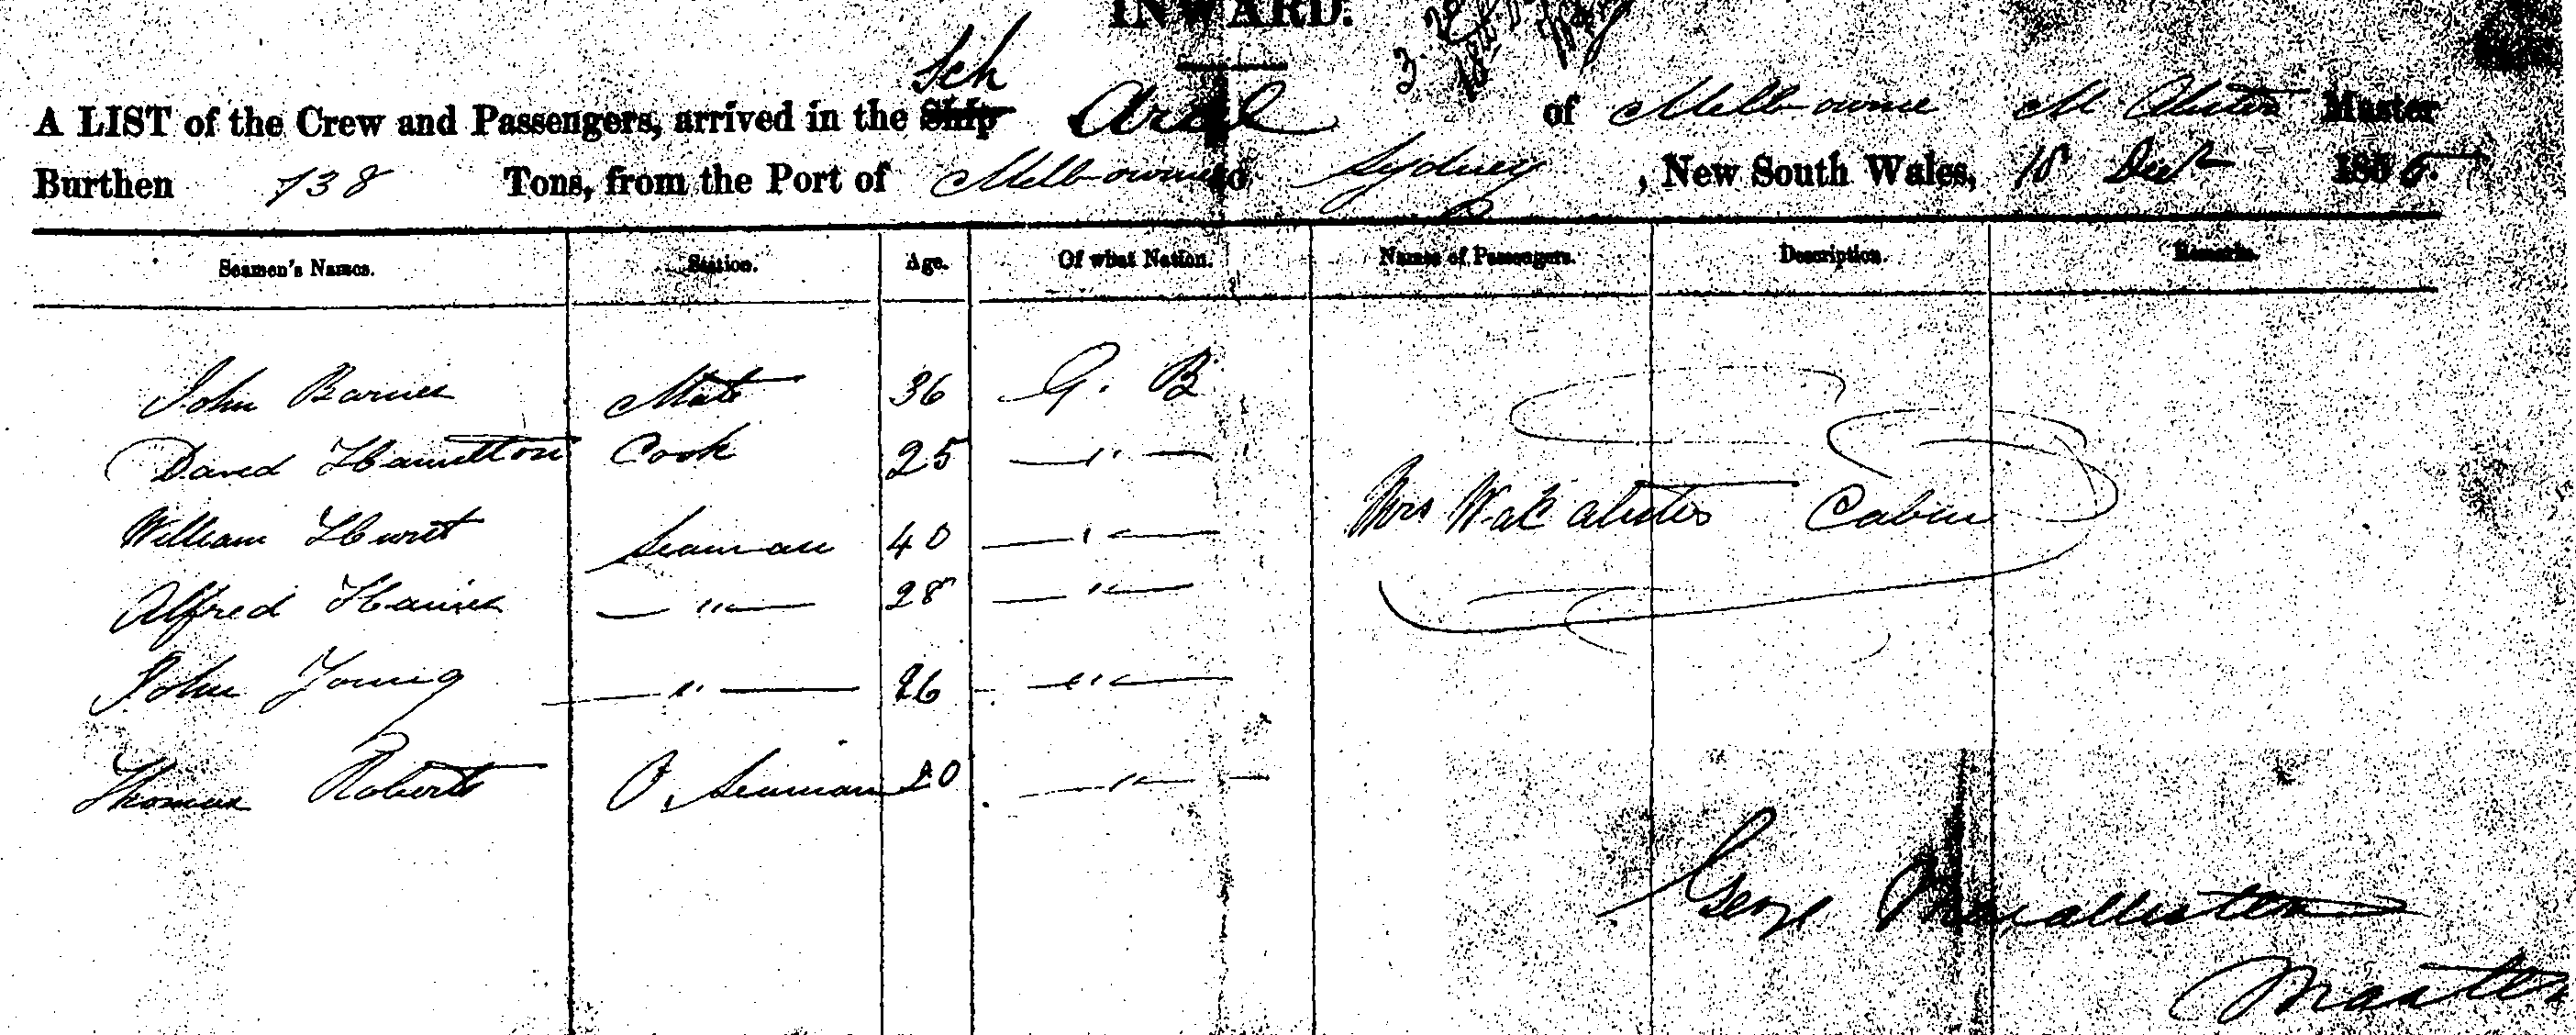 INWARD.
Sch
A LIST of the Crew and Passengers, arrived in the Ship Ariel of Melbourne M Alister Master
Burthen 138 Tons, from the Port of Melbourne to Sydney, New South Wales, 18 Decr 186
Seamen's Names. Station. Age. Of what Nation. Names of Passengers. Description Remarks.
John Barnes Mate 36 G. B
David Hamilton Cook 25 "
Mrs Cabin
William Seaman 40 "
Alfred Haines " 28 "
John Young " 26 "
Thomas Roberts O. Seaman 20 "
George Macallister
Master